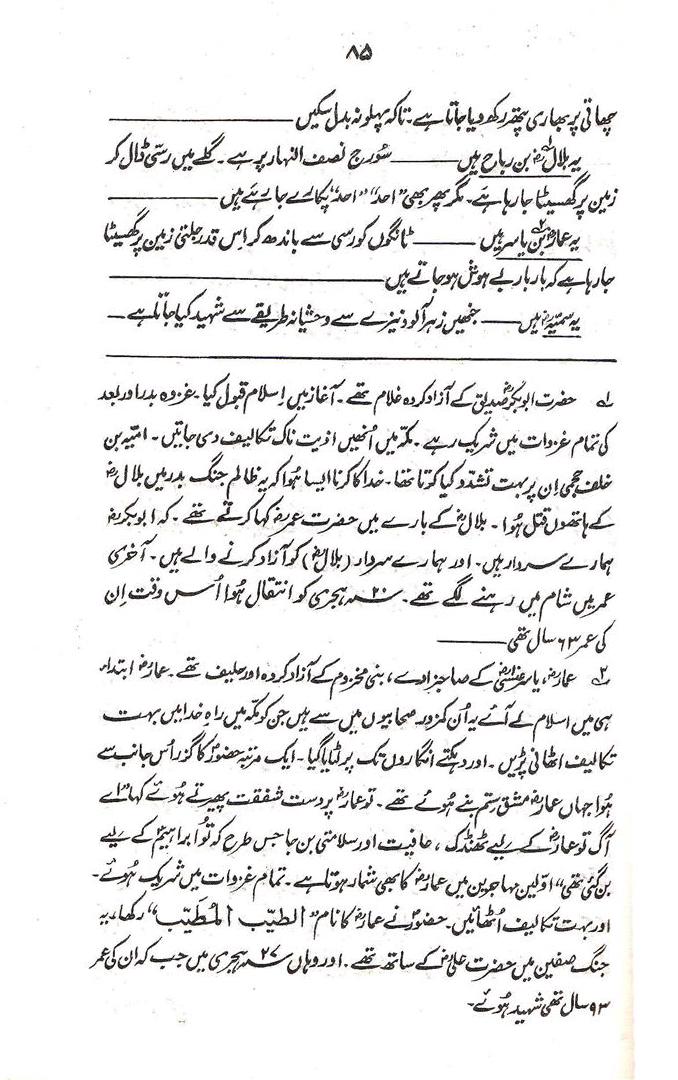 ۸۵
چھاتی پر بھاری پتھر رکھ دیا جاتا ہے۔ تاکہ پہلو نہ بدل سکیں ————
یہ بلالؓ بن رباح ہیں ———— سُورج نصف النہار پر ہے۔ گلے میں رسّی ڈال کر
زمین پر گھسیٹا جا رہا ہے۔ مگر پھر بھی ”احد“ ”احد“ پکارے جا رہے ہیں ————
یہ عمارؓ بن یاسر ہیں ———— ٹانگوں کو رسی سے باندھ کر اِس قدر جلتی زمین پر گھسیٹا
جا رہا ہے کہ بار بار بے ہوش ہو جاتے ہیں ————
یہ سمیّہؓ ہیں —— جنھیں زہر آلود نیزے سے وحشیانہ طریقے سے شہید کیا جاتا ہے ——
۱؎ حضرت ابوبکرؓ صدیق کے آزاد کردہ غلام تھے۔ آغاز میں اِسلام قبول کیا۔ غزوہ بدر اور بعد
کی تمام غزوات میں شریک رہے۔ مکّہ میں اُنھیں اذیت ناک تکالیف دی جاتیں۔ امیّہ بن
خلف جمحی اِن پر بہت تشدّد کیا کرتا تھا۔ خدا کا کرنا ایسا ہُوا کہ یہ ظالم جنگ بدر میں بلالؓ
کے ہاتھوں قتل ہُوا۔ بلالؓ کے بارے میں حضرت عمرؓ کہا کرتے تھے۔ کہ ابوبکرؓ
ہمارے سردار ہیں۔ اور ہمارے سردار (بلالؓ) کو آزاد کرنے والے ہیں۔ آخری
عمر میں شام میں رہنے لگے تھے۔ ۲۰؁ ہجری کو انتقال ہُوا اُس وقت اِن
کی عمر ۶۳ سال تھی ————
۲؎ عمارؓ، یاسر عنسیؓ کے صاحبزادے، بنی مخزوم کے آزاد کردہ اور حلیف تھے۔ عمارؓ ابتداء
ہی میں اسلام لے آئے یہ اُن کمزور صحابیوں میں سے ہیں جن کو مکّہ میں راہِ خدا میں بہت
تکالیف اٹھانی پڑیں۔ اور دہکتے انگاروں تک پر لٹایا گیا۔ ایک مرتبہ حضورؐ کا گزر اُس جانب سے
ہُوا جہاں عمارؓ مشق ستم بنے ہُوئے تھے۔ تو عمارؓ پر دست شفقت پھیرتے ہُوئے کہا ”اے
آگ تو عمارؓ کے لیے ٹھنڈک، عافیت اور سلامتی بن جا جس طرح کہ تو ابراہیمؑ کے لیے
بن گئی تھی“ اوّلین مہاجرین میں عمارؓ کا بھی شمار ہوتا ہے۔ تمام غزوات میں شریک ہُوئے۔
اور بہت تکالیف اُٹھائیں۔ حضورؐ نے عمارؓ کا نام ”الطیّب المُطَیّب“ رکھا، یہ
جنگ صفین میں حضرت علیؓ کے ساتھ تھے۔ اور وہاں ۲۷؁ ہجری میں جب کہ ان کی عمر
۹۳ سال تھی شہید ہُوئے۔